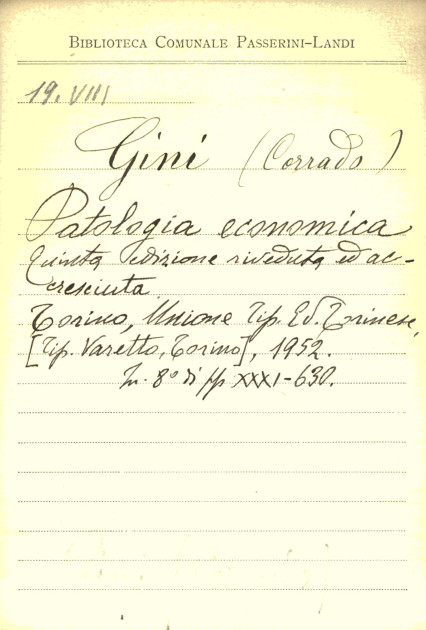 BIBLIOTECA COMUNALE PASSERINI-LANDI
19. VIII
Gini (Corrado)
Patologia economica
Quinta edizione riveduta ed ac-
cresciuta
Torino, Unione Tip. Ed. Torinese,
[Tip. Varetto, Torino], 1952.
In. 8º di pp XXXI-630.